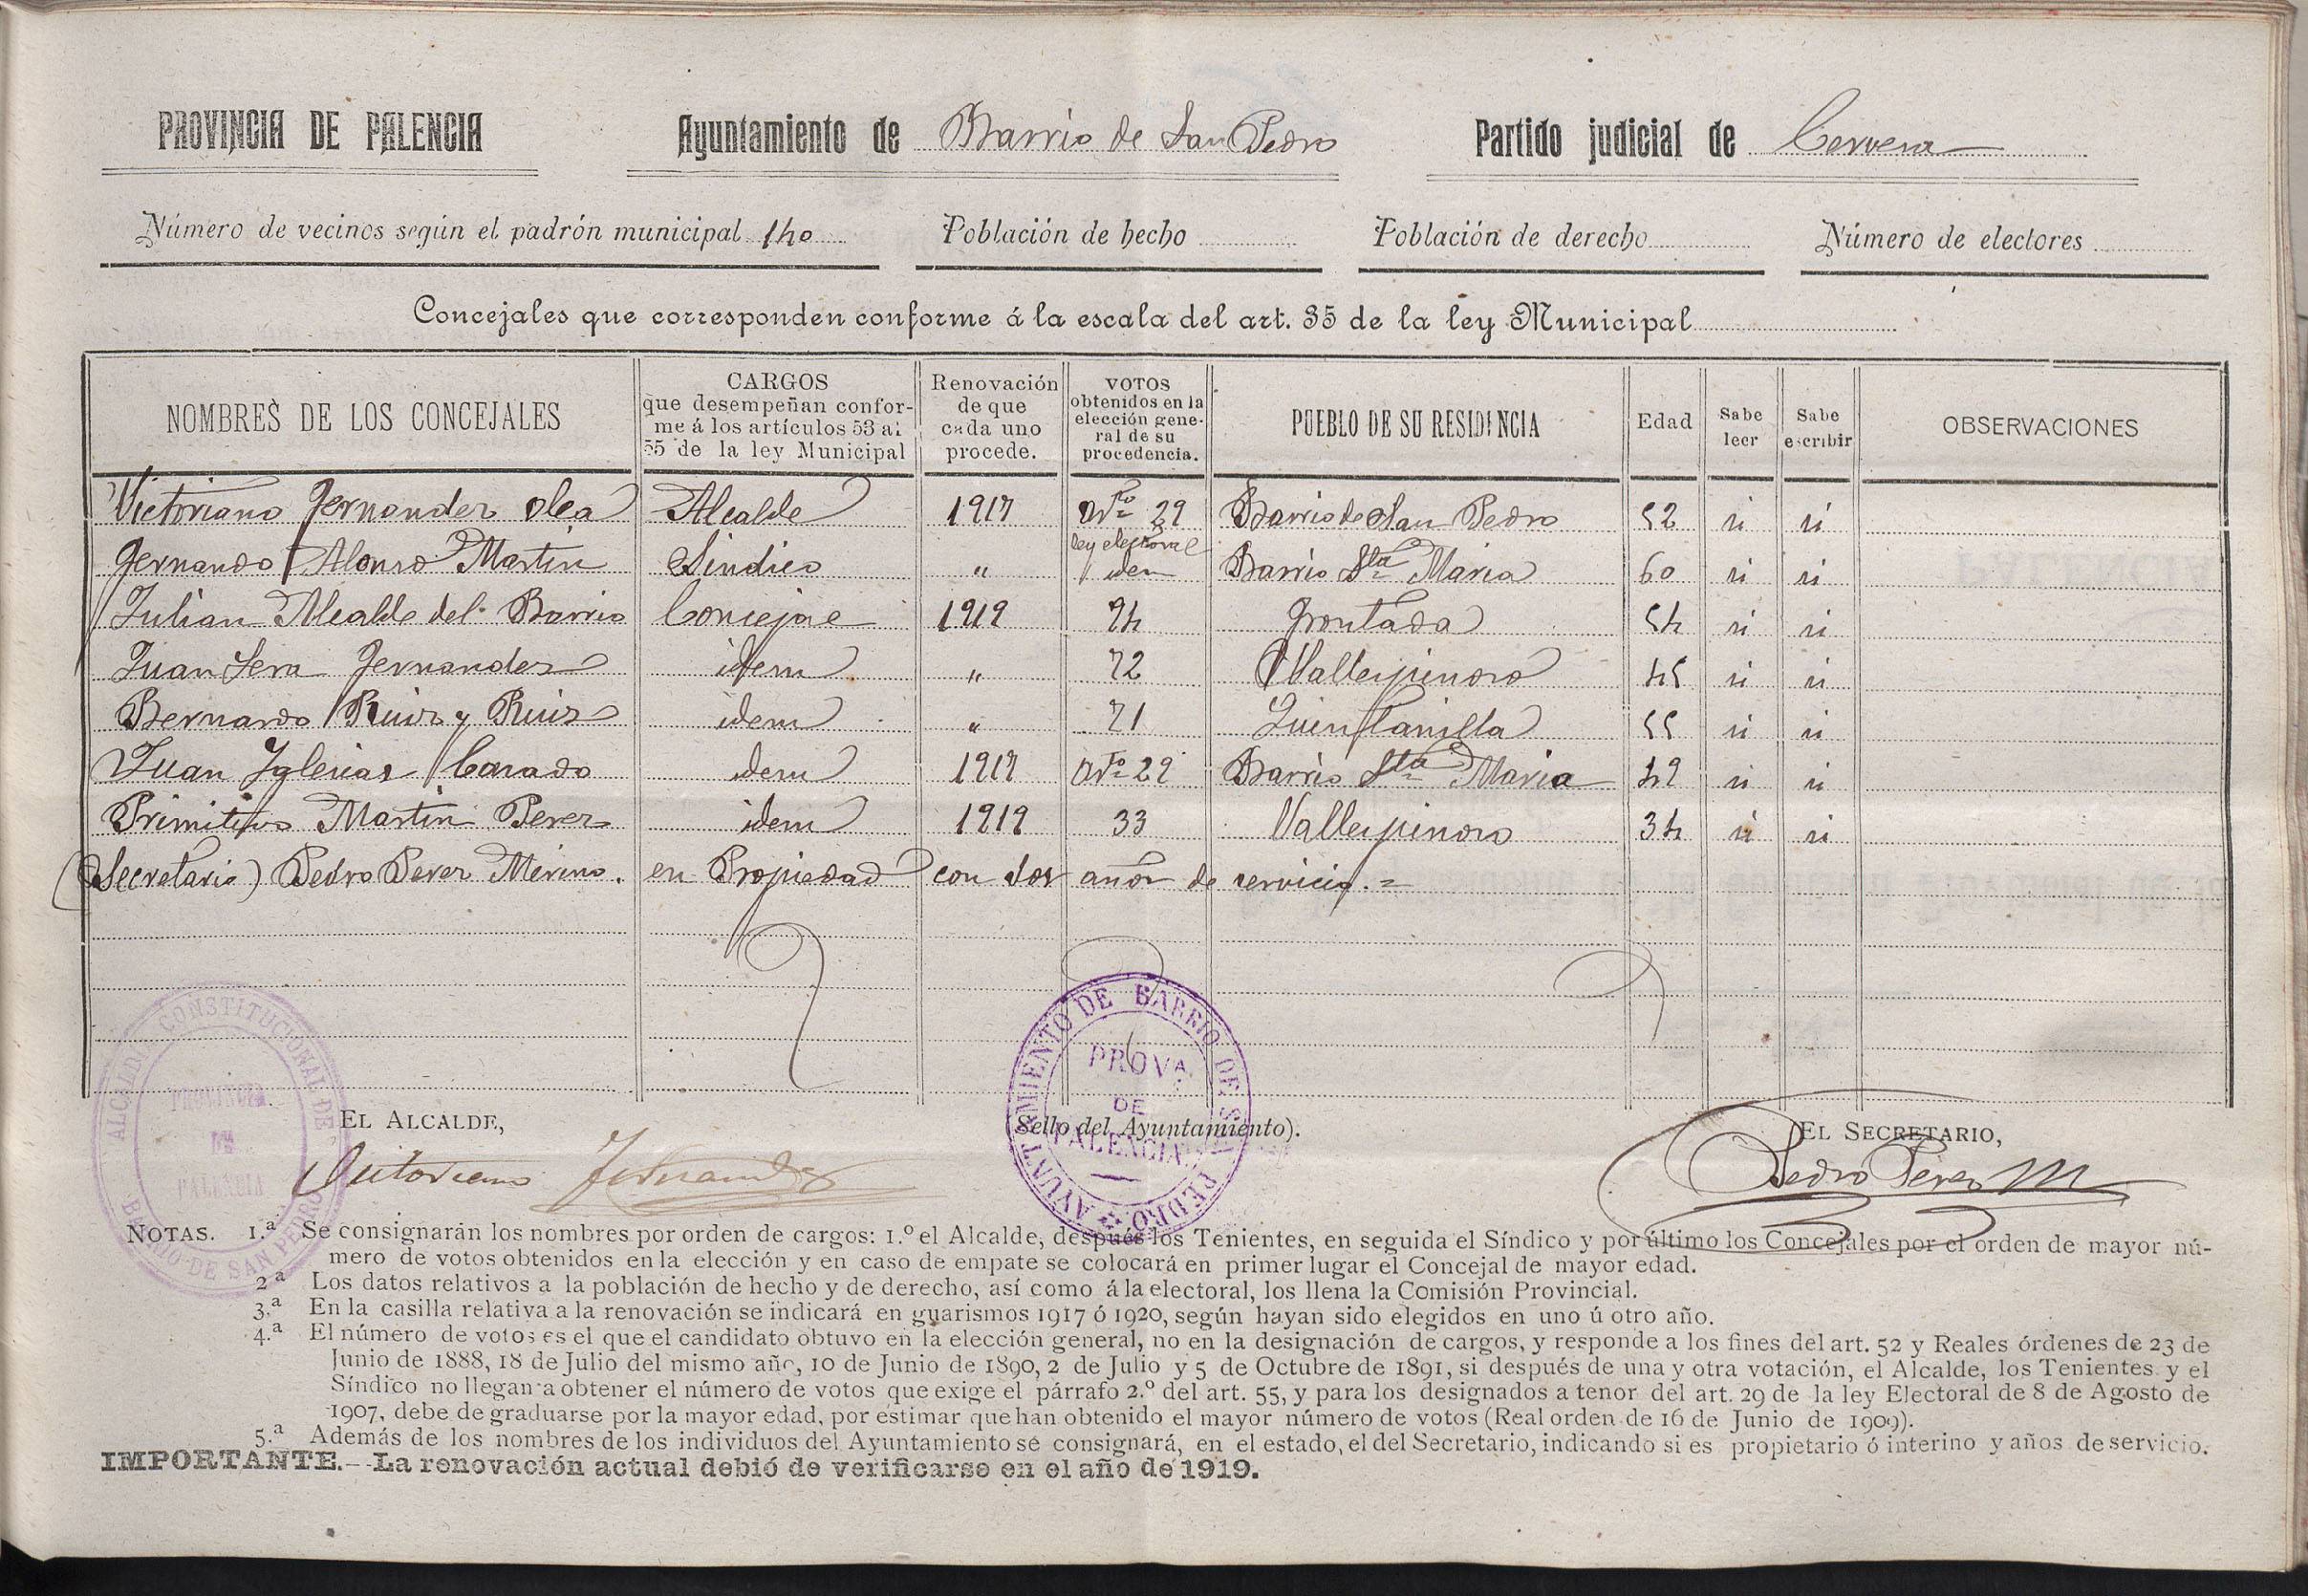 PROVINCIA DE PALENCIA Ayuntamiento de Barrio de San Pedro Partido judicial de Cervera
Número de vecinos según el padrón municipal 140 Población de hecho Población de derecho Número de electores
Concejales que corresponden conforme á la escala del art. 35 de la ley Municipal
NOMBRES DE LOS CONCEJALES
CARGOS
que desempeñan confor-
me á los artículos 53 al
55 de la ley Municipal
Renovación
de que
cada uno
procede.
VOTOS
obtenidos en la
elección gene-
ral de su
procedencia.
PUEBLO DE SU RESIDENCIA
Edad
Sabe
leer
Sabe
escribir
OBSERVACIONES
Victoriano Fernandez Olea Alcalde 1917 Arto 29 Barrio de San Pedro 52 si si
ley electoral
Fernando Alonso Martin Sindico " idem Barrio Sta Maria 60 si si
Julian Alcalde del Barrio Concejal 1919 94 Frontada 54 si si
Juan Sera Fernandez idem " 72 Vallespinoso 45 si si
Bernardo Ruiz y Ruiz idem " 71 Quintanilla 55 si si
Juan Iglesias Casado idem 1917 Arto 29 Barrio Sta Maria 49 si si
Primitivo Martin Perez idem 1919 33 Vallespinoso 34 si si
(Secretario) Pedro Perez Merino. en Propiedad con dos años de servicio.=
ALCALDIA CONSTITUCIONAL DE BARRIO DE SAN PEDRO
PROVINCIA
DE
PALENCIA
AYUNTAMIENTO DE BARRIO DE SAN PEDRO
PROVA
DE
PALENCIA
EL ALCALDE, (Sello del Ayuntamiento). EL SECRETARIO,
Victoriano Fernandez Pedro Perez M
NOTAS. 1.ª Se consignarán los nombres por orden de cargos: 1.º el Alcalde, después los Tenientes, en seguida el Síndico y por último los Concejales por el orden de mayor nú-
mero de votos obtenidos en la elección y en caso de empate se colocará en primer lugar el Concejal de mayor edad.
2.ª Los datos relativos a la población de hecho y de derecho, así como á la electoral, los llena la Comisión Provincial.
3.ª En la casilla relativa a la renovación se indicará en guarismos 1917 ó 1920, según hayan sido elegidos en uno ú otro año.
4.ª El número de votos es el que el candidato obtuvo en la elección general, no en la designación de cargos, y responde a los fines del art. 52 y Reales órdenes de 23 de
Junio de 1888, 18 de Julio del mismo año, 10 de Junio de 1890, 2 de Julio y 5 de Octubre de 1891, si después de una y otra votación, el Alcalde, los Tenientes y el
Síndico no llegan a obtener el número de votos que exige el párrafo 2.º del art. 55, y para los designados a tenor del art. 29 de la ley Electoral de 8 de Agosto de
1907, debe de graduarse por la mayor edad, por estimar que han obtenido el mayor número de votos (Real orden de 16 de Junio de 1909).
5.ª Además de los nombres de los individuos del Ayuntamiento se consignará, en el estado, el del Secretario, indicando si es propietario ó interino y años de servicio.
IMPORTANTE.—La renovación actual debió de verificarse en el año de 1919.